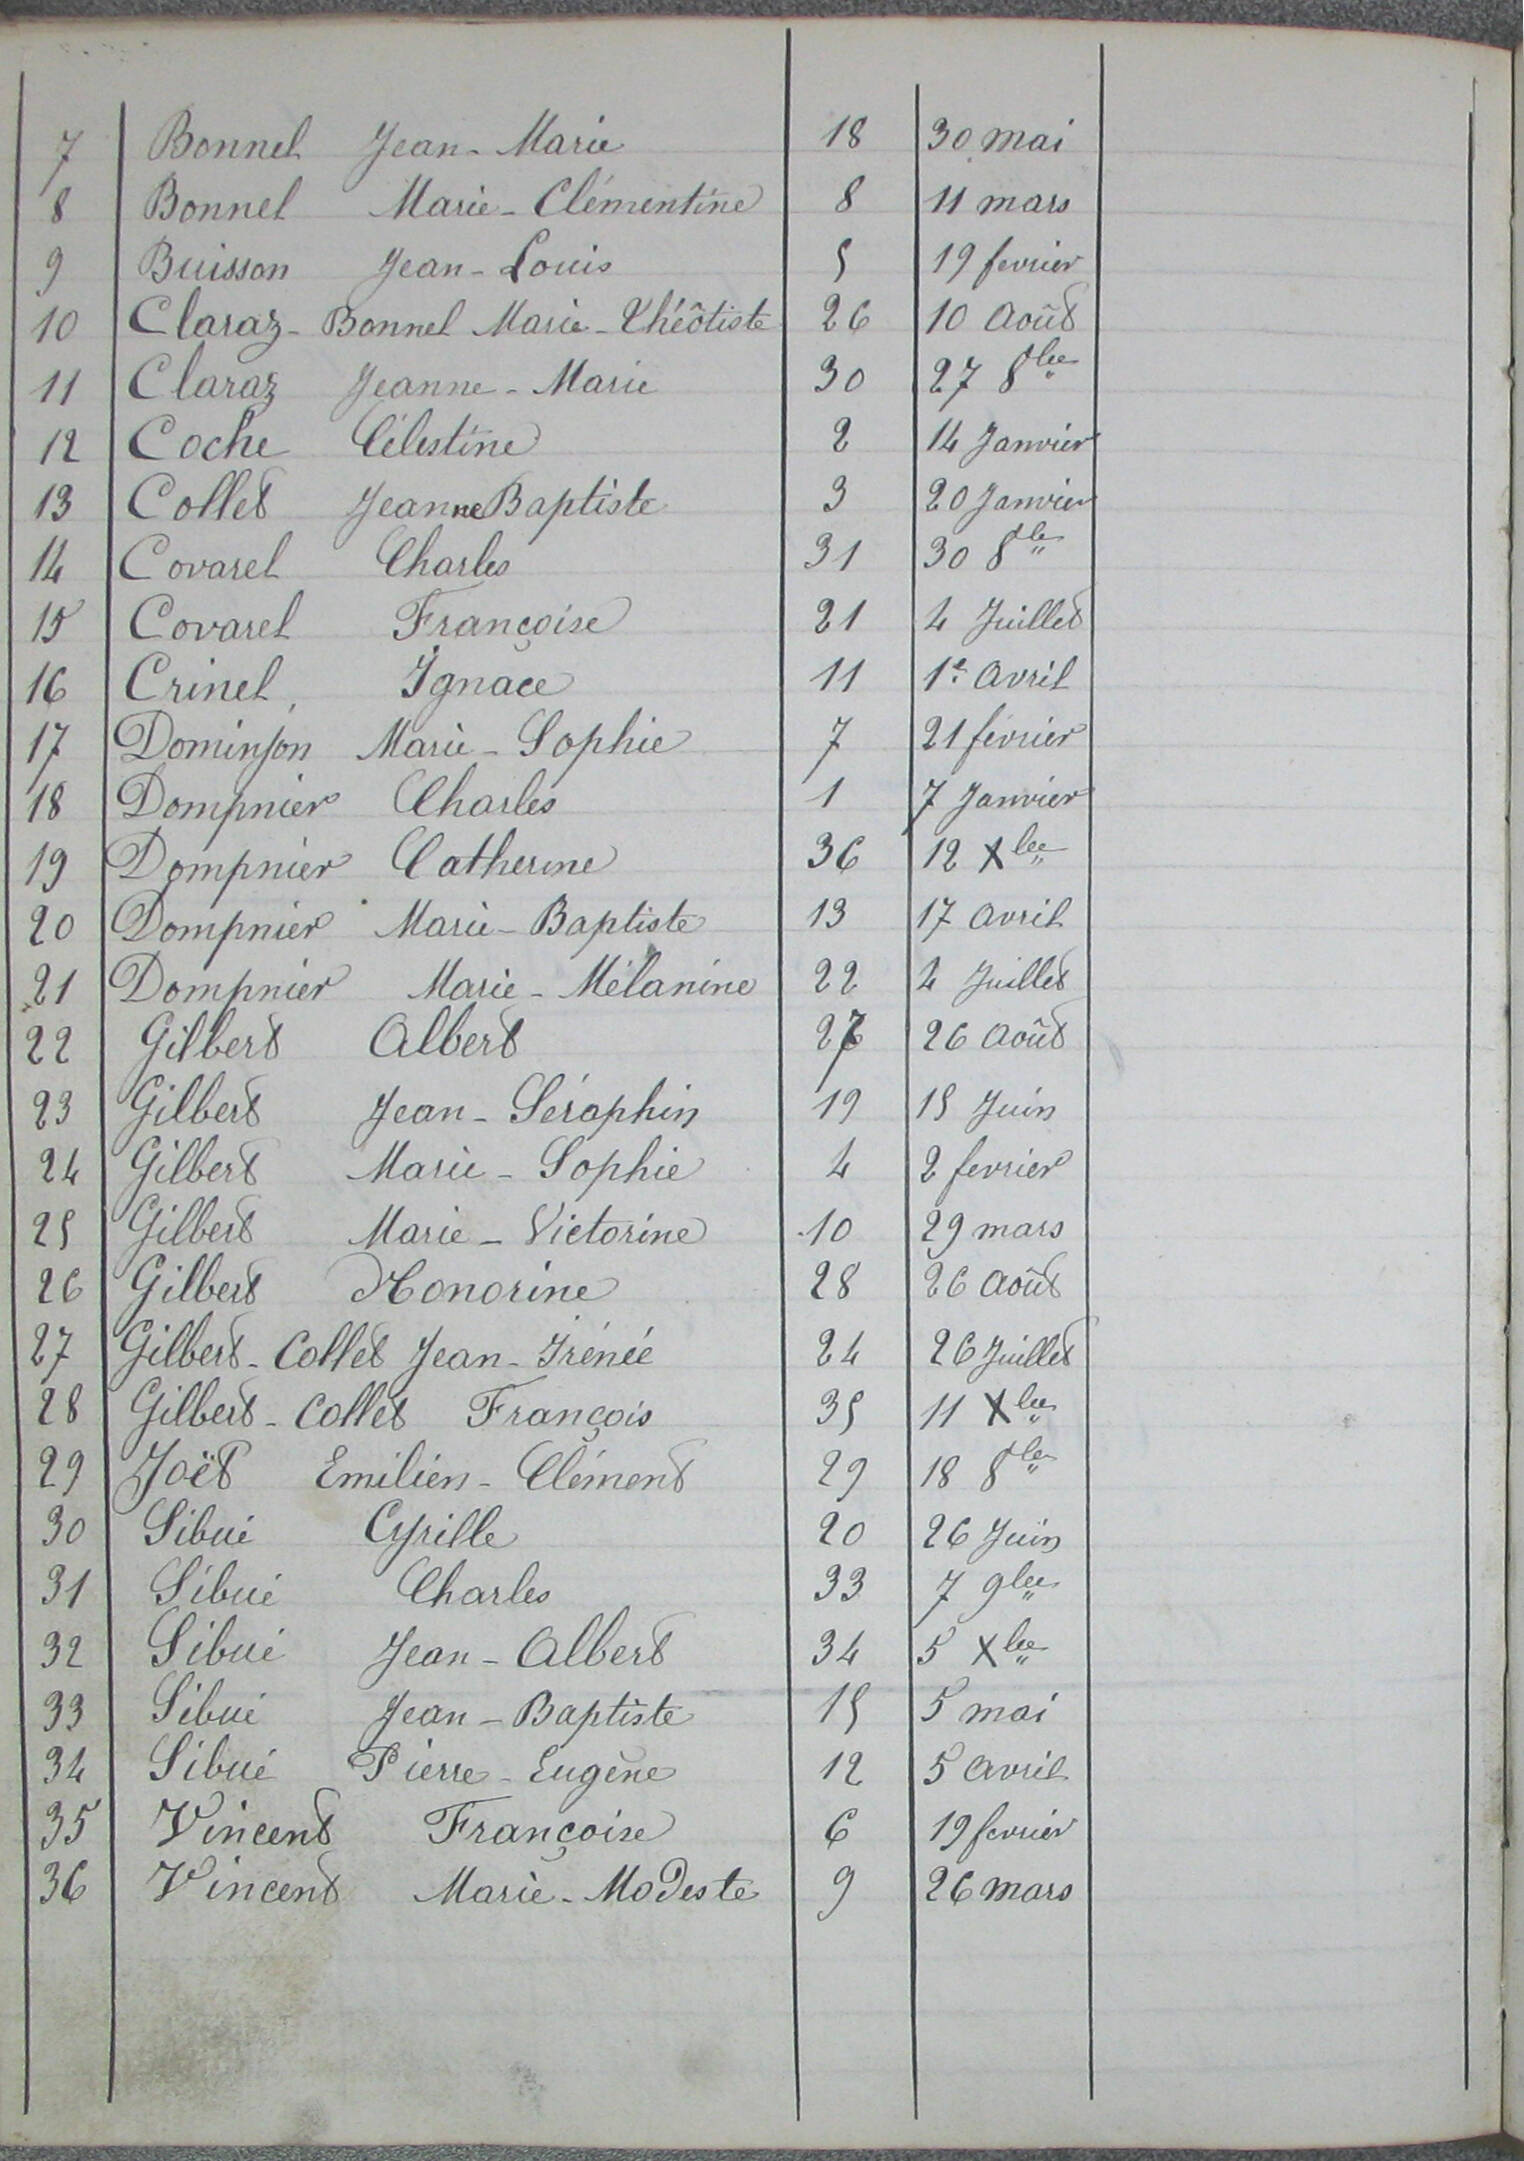 7 Bonnel Jean-Marie 18 30 mai
8 Bonnel Marie-Clémentine 8 11 mars
9 Buisson Jean-Louis 5 19 fevrier
10 Claraz-Bonnel Marie-Théôtiste 26 10 Août
11 Claraz Jeanne-Marie 30 27 8bre
12 Coche Célestine 2 14 Janvier
13 Collet Jeanne Baptiste 3 20 Janvier
14 Covarel Charles 31 30 8bre
15 Covarel Françoise 21 4 Juillet
16 Crinel, Ignace 11 1er Avril
17 Dominjon Marie-Sophie 7 21 février
18 Dompnier Charles 1 7 Janvier
19 Dompnier Catherine 36 12 Xbre
20 Dompnier Marie-Baptiste 13 17 Avril
21 Dompnier Marie-Mélanine 22 4 Juillet
22 Gilbert Albert 27 26 Août
23 Gilbert Jean-Séraphin 19 15 Juin
24 Gilbert Marie-Sophie 4 2 fevrier
25 Gilbert Marie-Victorine 10 29 mars
26 Gilbert Honorine 28 26 Août
27 Gilbert-Collet Jean-Irénée 24 26 Juillet
28 Gilbert-Collet François 35 11 Xbre
29 Joët Emilien-Clément 29 18 8bre
30 Sibué Cyrille 20 26 Juin
31 Sibué Charles 33 7 9bre
32 Sibué Jean-Albert 34 5 Xbre
33 Sibué Jean-Baptiste 15 5 mai
34 Sibué Pierre-Eugène 12 5 Avril
35 Vincent Françoise 6 19 fevrier
36 Vincent Marie-Modeste 9 26 mars